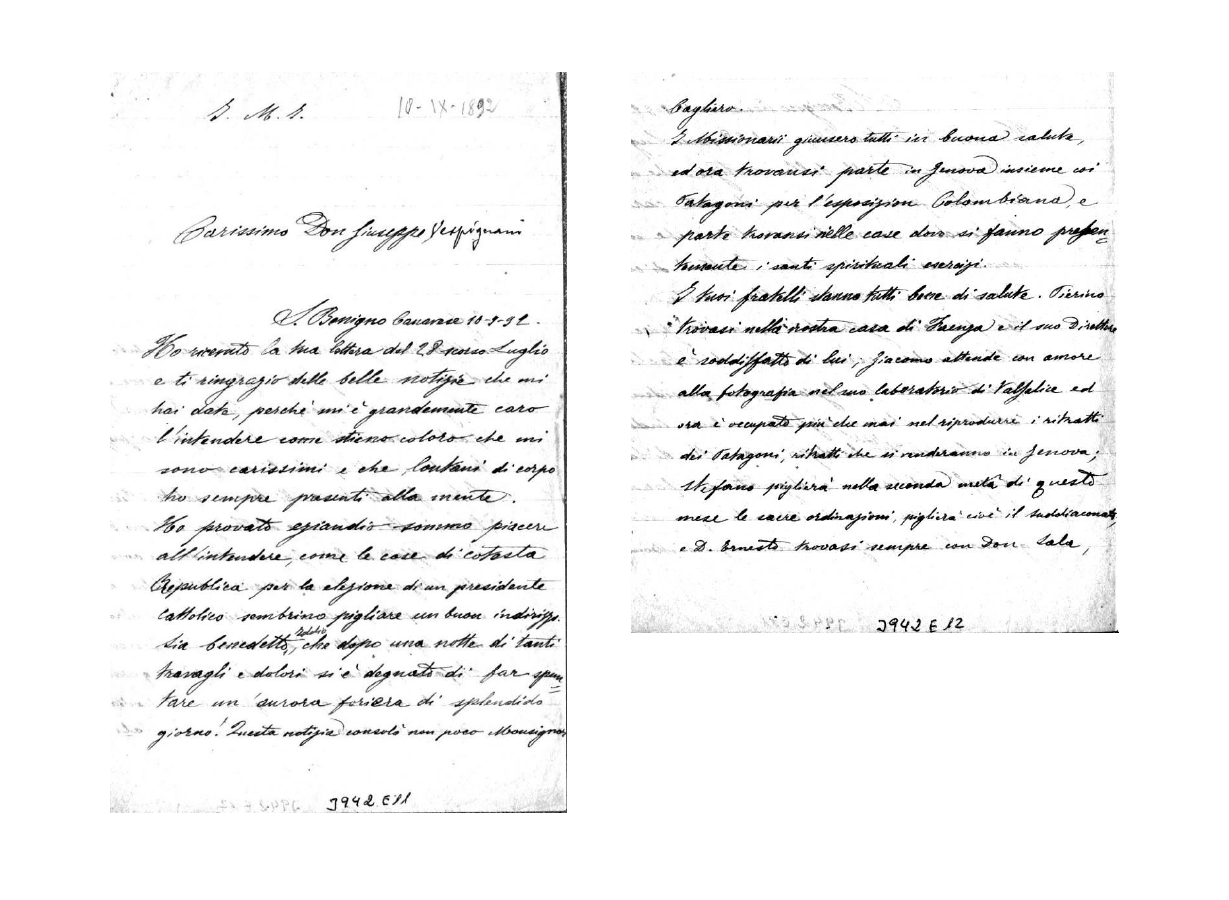 G. M. G.
10-IX-1892
Carissimo Don Giuseppe Vespignani
S. Benigno Canavese 10-9-92.
Ho ricevuto la tua lettera del 28 scorso Luglio
e ti ringrazio delle belle notizie che mi
hai date, perchè mi è grandemente caro
l'intendere come stieno coloro che mi
sono carissimi e che lontani di corpo
ho sempre presenti alla mente.
Ho provato eziandio sommo piacere
all'intendere, come le cose di cotesta
Repubblica per la elezione di un presidente
Cattolico sembrino pigliare un buon indirizzo.
Sia benedetto Iddio, che dopo una notte di tanti
travagli e dolori si è degnato di far spun
tare un'aurora foriera di splendido
giorno! Questa notizia consolò non poco Monsignor
J942 E11
Cagliero.
I Missionarii giunsero tutti in buona salute,
ed ora trovansi parte in Genova insieme coi
Patagoni per l'esposizion Colombiana, e
parte trovansi nelle case dove si fanno presen=
temente i santi spirituali esercizi.
I tuoi fratelli stanno tutti bene di salute. Pierino
trovasi nella nostra casa di Faenza e il suo Direttore
è soddisfatto di lui; Giacomo attende con amore
alla fotografia nel suo laboratorio di Valsalice ed
ora è occupato più che mai nel riprodurre i ritratti
dei Patagoni, ritratti che si venderanno in Genova;
Stefano piglierà nella seconda metà di questo
mese le sacre ordinazioni, piglierà cioè il suddiaconato,
e D. Ernesto trovasi sempre con Don Sala,
J942 E12